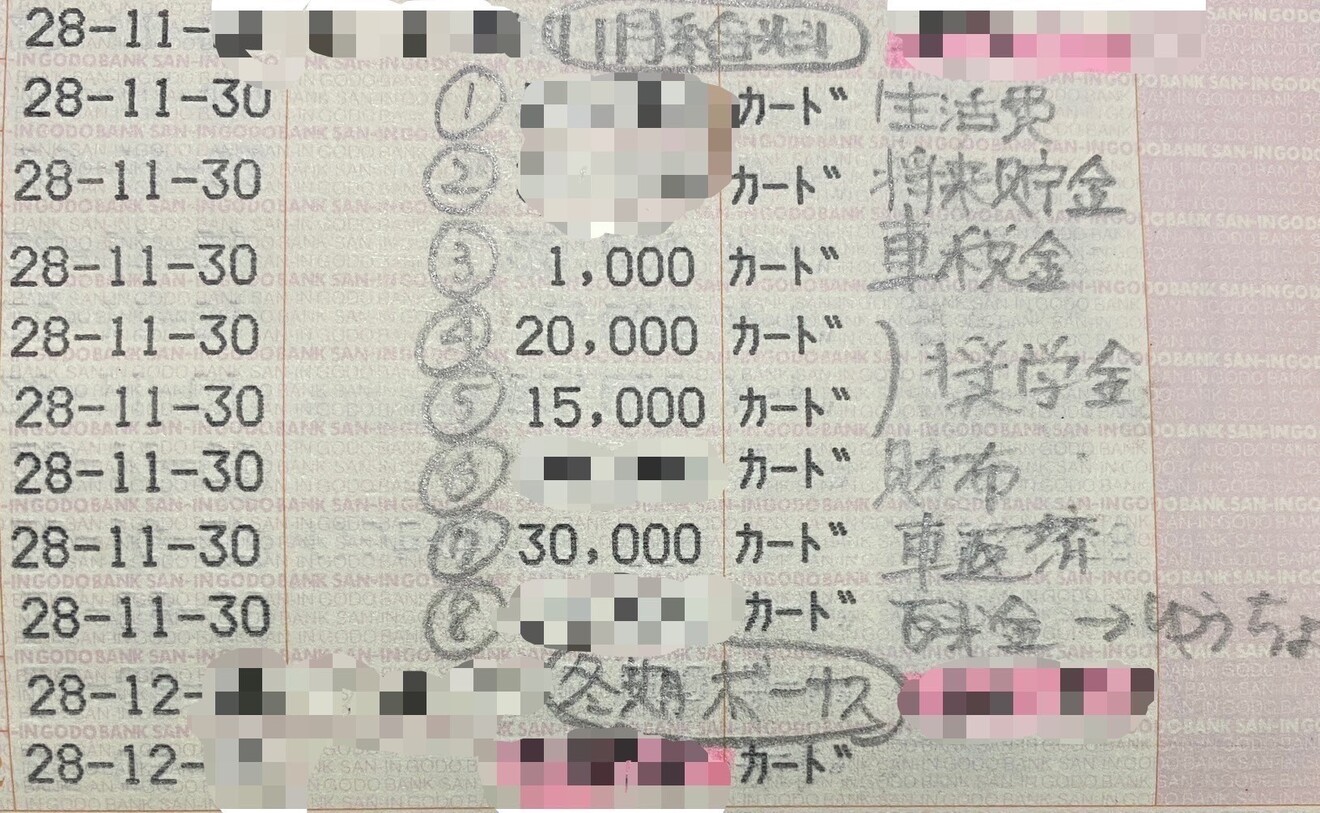 28-11- 11月給料
28-11-30 ① カード 生活費
28-11-30 ② カード 将来貯金
28-11-30 ③ 1,000 カード 車税金
28-11-30 ④ 20,000 カード ) 奨学金
28-11-30 ⑤ 15,000 カード
28-11-30 ⑥ カード 財布
28-11-30 ⑦ 30,000 カード 車返済
28-11-30 ⑧ カード 貯金 → ゆうちょ
28-12- 冬期ボーナス
28-12- カード